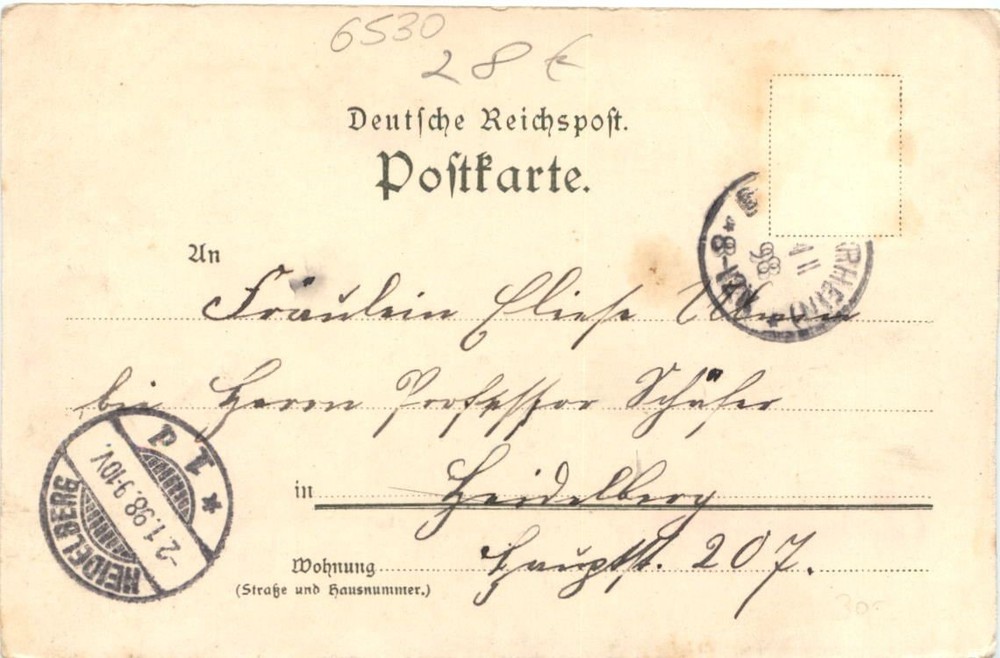 6530
28 €
Deutsche Reichspost.
Postkarte.
An
Fräulein Eliese
bei Herrn Professor Schäfer
in Heidelberg
Wohnung Hauptst. 207.
(Straße und Hausnummer.)
(RHEIN) *
98
HEIDELBERG
-2.1.98.9-10V.
* 1 d
30-